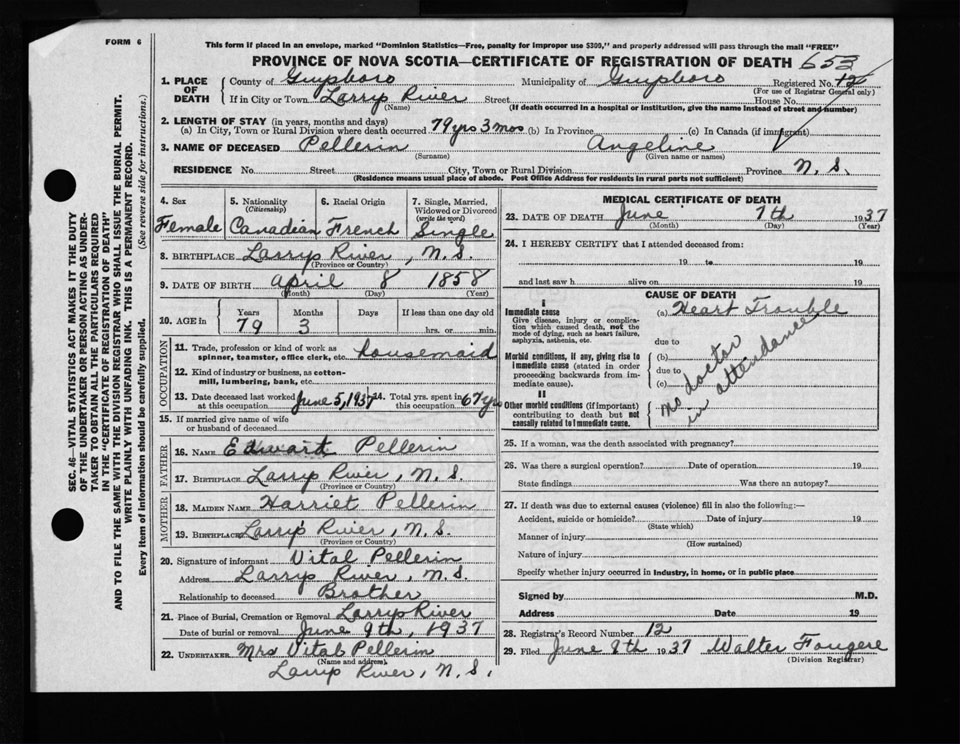 FORM 6
This form if placed in an envelope, marked "Dominion Statistics—Free, penalty for improper use $300," and properly addressed will pass through the mail "FREE"
PROVINCE OF NOVA SCOTIA—CERTIFICATE OF REGISTRATION OF DEATH 653
1. PLACE OF DEATH County of Guysboro Municipality of Guysboro Registered No. 12
(For use of Registrar General only)
If in City or Town Larrys River Street House No.
(Name) (If death occurred in a hospital or institution, give the name instead of street and number)
2. LENGTH OF STAY (in years, months and days)
(a) In City, Town or Rural Division where death occurred 79 yrs 3 mos (b) In Province (c) In Canada (if immigrant)
3. NAME OF DECEASED Pellerin Angeline
(Surname) (Given name or names)
RESIDENCE No. Street City, Town or Rural Division Province N.S.
(Residence means usual place of abode. Post Office Address for residents in rural parts not sufficient)
4. Sex 5. Nationality 6. Racial Origin 7. Single, Married,
(Citizenship) Widowed or Divorced
(write the word)
Female Canadian French Single
8. BIRTHPLACE Larrys River, N.S.
(Province or Country)
9. DATE OF BIRTH April 8 1858
(Month) (Day) (Year)
10. AGE in Years Months Days If less than one day old
79 3 hrs. or min.
OCCUPATION
11. Trade, profession or kind of work as
spinner, teamster, office clerk, etc. housemaid
12. Kind of industry or business, as cotton-
mill, lumbering, bank, etc.
13. Date deceased last worked June 5, 1937 14. Total yrs. spent in
at this occupation this occupation 67 yrs
15. If married give name of wife
or husband of deceased
FATHER
16. NAME Edward Pellerin
17. BIRTHPLACE Larrys River, N.S.
(Province or Country)
MOTHER
18. MAIDEN NAME Harriet Pellerin
19. BIRTHPLACE Larrys River, N.S.
(Province or Country)
20. Signature of informant Vital Pellerin
Address Larrys River, N.S.
Relationship to deceased Brother
21. Place of Burial, Cremation or Removal Larrys River
Date of burial or removal June 9th, 1937
22. UNDERTAKER Mrs Vital Pellerin
(Name and address)
Larrys River, N.S.
MEDICAL CERTIFICATE OF DEATH
23. DATE OF DEATH June 7th 1937
(Month) (Day) (Year)
24. I HEREBY CERTIFY that I attended deceased from:
19 to 19
and last saw h alive on 19
CAUSE OF DEATH
I
Immediate cause (a) Heart Trouble
Give disease, injury or complica-
tion which caused death, not the
mode of dying, such as heart failure,
asphyxia, asthenia, etc.
due to
Morbid conditions, if any, giving rise to (b)
immediate cause (stated in order due to
proceeding backwards from im-
mediate cause). (c)
II
Other morbid conditions (if important)
contributing to death but not
causally related to immediate cause.
no doctor
in attendance
25. If a woman, was the death associated with pregnancy?
26. Was there a surgical operation? Date of operation 19
State findings Was there an autopsy?
27. If death was due to external causes (violence) fill in also the following:—
Accident, suicide or homicide? Date of injury 19
(State which)
Manner of injury
(How sustained)
Nature of injury
Specify whether injury occurred in industry, in home, or in public place
Signed by M.D.
Address Date 19
28. Registrar's Record Number 12
29. Filed June 8th 1937 Walter Fougere
(Division Registrar)
SEC. 46—VITAL STATISTICS ACT MAKES IT THE DUTY
OF THE UNDERTAKER OR PERSON ACTING AS UNDER-
TAKER TO OBTAIN ALL THE PARTICULARS REQUIRED
IN THE "CERTIFICATE OF REGISTRATION OF DEATH"
AND TO FILE THE SAME WITH THE DIVISION REGISTRAR WHO SHALL ISSUE THE BURIAL PERMIT.
WRITE PLAINLY WITH UNFADING INK. THIS IS A PERMANENT RECORD.
Every item of information should be carefully supplied. (See reverse side for instructions.)